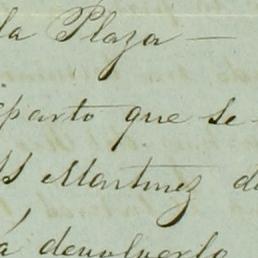 la Plaza —
eparto que se
SS Martinez de
á devolverlo